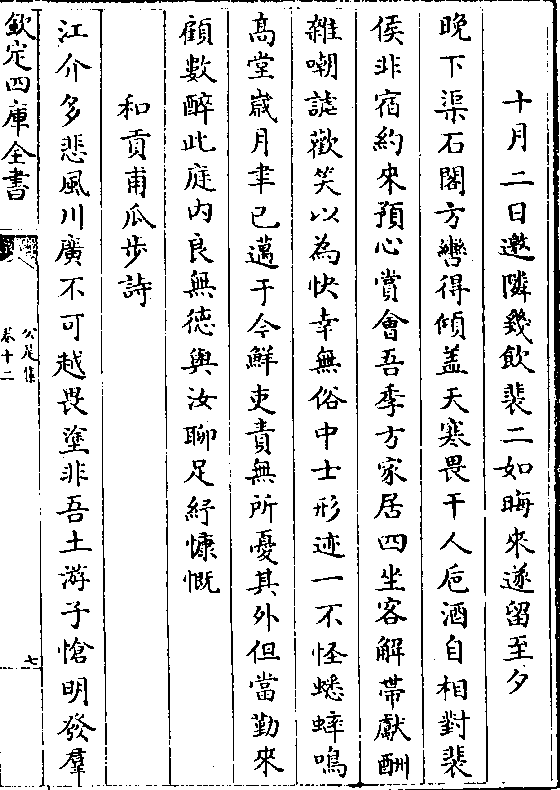 十月二日邀隣幾飲裴二如晦來遂留至夕
晚下渠石閣方轡得傾盖天寒畏干人巵酒自相對裴
侯非宿約來預心賞會吾季方家居四坐客解帶獻酬
雜嘲諕歡笑以為快幸無俗中士形迹一不怪蟋蟀鳴
髙堂嵗月聿已邁于今鮮吏責無所憂其外但當勤來
顧數醉此庭内良無德與汝聊足紓慷慨
和貢甫瓜步詩
江介多悲風川廣不可越畏塗非吾土游子愴明發羣
欽定四庫全書
公是集
卷十二
七